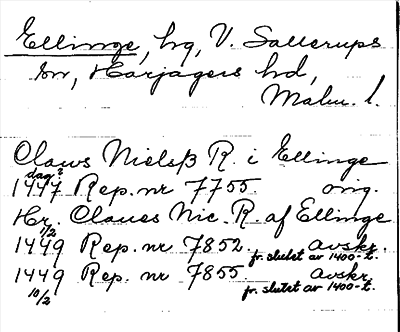 Ellinge, hg, V. Sallerups
sn, Harjagers hd,
Malm. l.
Claws Nielsß R. i Ellinge
dag?
1447 Rep. nr 7755. orig.
Hr. Claues Nic. R. af Ellinge
1/2
1449 Rep. nr 7852. avskr.
fr. slutet av 1400-t.
1449 Rep. nr 7855. avskr.
10/2 fr. slutet av 1400-t.